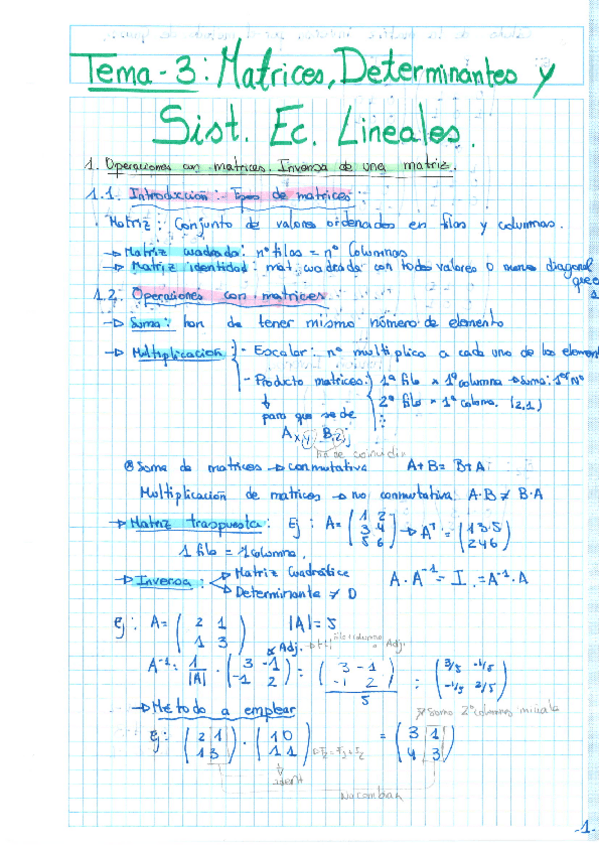 Tema-3: Matrices, Determinantes y
Sist. Ec. Lineales.
1. Operaciones con matrices. Inversa de una matriz.
1.1. Introducción: Tipos de matrices:
· Matriz: Conjunto de valores ordenados en filas y columnas.
→ Matriz cuadrada: nº filas = nº Columnas
→ Matriz identidad: mat. cuadrada con todos valores 0 menos diagonal
que
1.2: Operaciones con matrices
→ Suma: han de tener mismo número de elemento
→ Multiplicación } - Escalar: nº multiplica a cada uno de los element
- Producto matrices: } 1ª fila × 1ª columna → Suma: 1er Nº
↓ 2ª fila × 1ª columna. (2,1)
para que se de :
A B
ha de coincidir
⊗ Suma de matrices → conmutativa A+B = B+A
Multiplicación de matrices → no conmutativa A·B ≠ B·A
→ Matriz traspuesta: Ej: A = (1 2 / 3 4 / 5 6) → Aᵀ = (1 3 5 / 2 4 6)
1 fila = 1 columna.
→ Inversa: → Matriz Cuadrática A·A⁻¹ = I = A⁻¹·A
→ Determinante ≠ 0
Ej: A = (2 1 / 1 3) |A| = 5
Adj. Adj
A⁻¹ = 1/|A| · (3 -1 / -1 2) = (3 -1 / -1 2)/5 = (3/5 -1/5 / -1/5 2/5)
→ Método a emplear
Suma 2ª columna
Ej: (2 1 / 1 3) · (1 0 / 1 1) = (3 1 / 4 3)
ident
No cambian
-1-